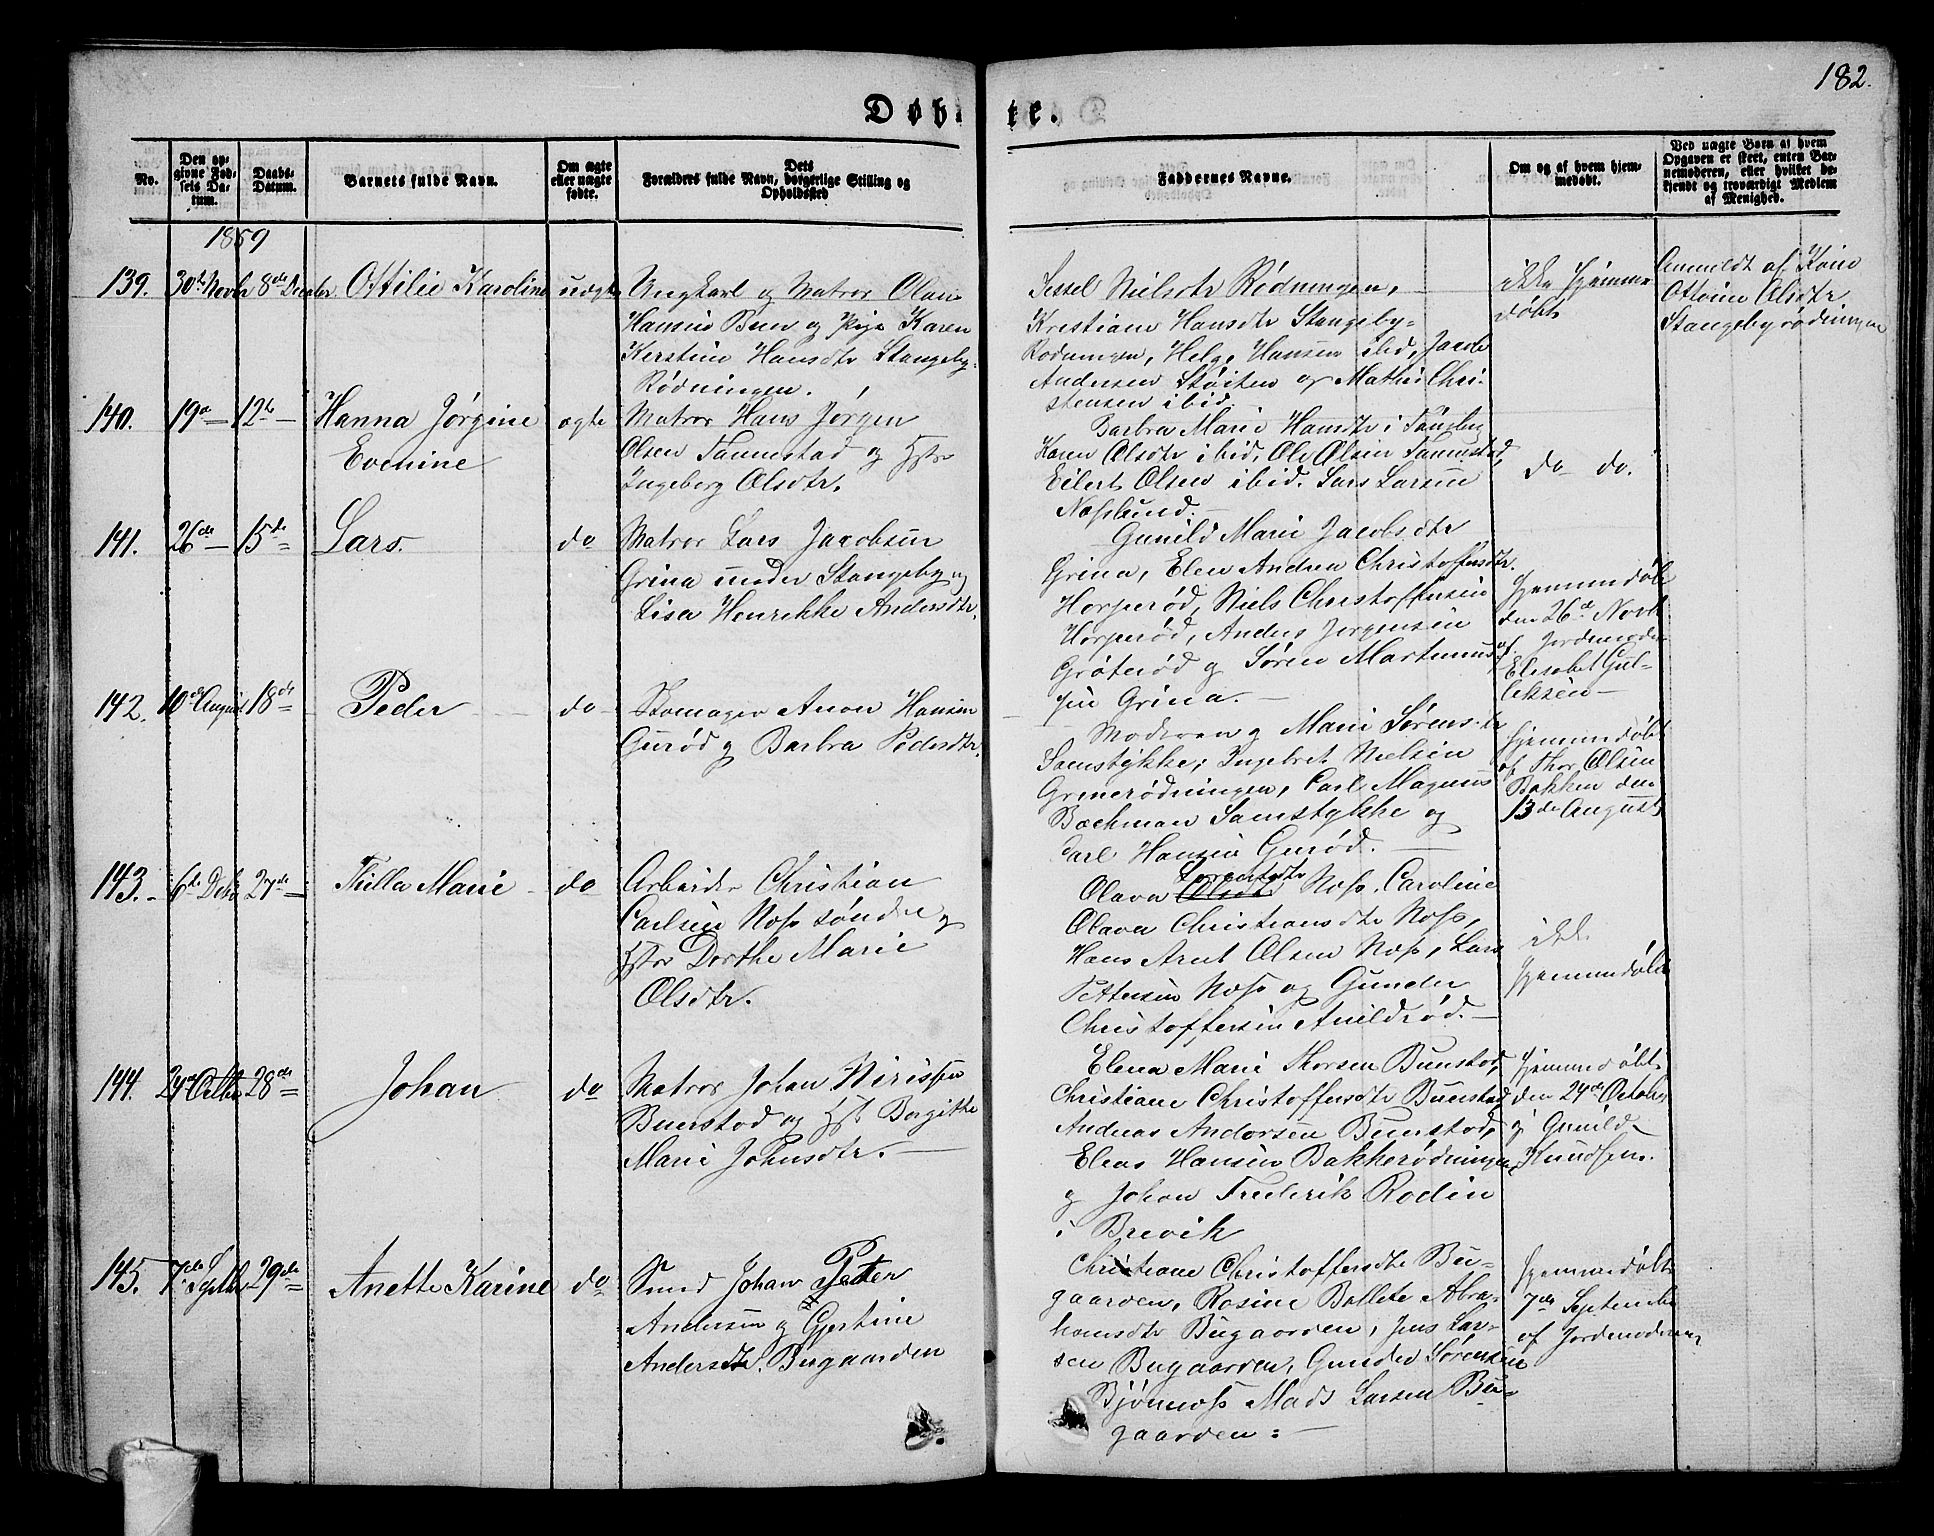 182.
Døbte.
No.
Den opgivne Fødsels Datum.
Daabs-Datum.
Barnets fulde Navn.
Om ægte eller uægte fødte.
Dets Forælders fulde Navn, borgerlige Stilling og Opholdssted
Faddernes Navne.
Om og af hvem hjemmedøbt.
Ved uægte Børn af hvem Opgaven er skeet, enten Barnemoderen, eller hvilket bekjendt og troværdigt Medlem af Menighed.
1859
139.
30te Novbr
8de Decbr
Ottilie Karoline
uægte
Ungkarl og Matros Olaus
Hansen Buer og Pige Karen
Kerstine Hansdtr Stangeby
Rødningen.
Sessel Nielsdtr Rødningen,
Kristiane Hansdtr Stangeby-
Rødningen, Helge Hansen ibid, Jacob
Andersen Støiten og Mathis Chri-
stensen ibid.
ikke hjemme
døbt
Anmeldt af Kone
Ottine Olsdtr
Stangebyrødningen
140.
19de
12te
Hanna Jørgine
Evenine
ægte
Matros Hans Jørgen
Olsen Tannestad og Hstr
Ingeborg Olsdtr.
Barbra Marie Hansdtr i
Karen Olsdtr ibid, Ole Olsen Tannestad,
Eilert Olsen ibid. Lars Larsen
Næslund.
do do.
141.
26de
15de
Lars.
do
Matros Lars Jacobsen
Grina under Stangeby og
Lisa Henrikke Andersdtr.
Gunild Marie Jacobsdtr
Grina, Elen Andrea Christoffersdtr.
Horperød, Niels Christoffersen
Horperød, Anders Jørgensen
Grøterød og Søren Martinus-
sen Grina.
Hjemmedøbt
den 26de Novb
af Jordemoder
Elisabet Gul-
leksen
142.
10de August
18de
Peder
do
Skomager Anon Hansen
Gurød og Barbra Pedersdtr.
Moderen og Marie Sørensdtr
Samstykke, Ingebret Nielsen
Grinerødningen, Carl Magnus
Bachman Samstykke og
Carl Hansen Gurød.
hjemmedøbt
af Thor Olsen
Bakken den
13de August
143.
6te Decbr
27de
Thilla Marie
do
Arbeider Christian
Carlsen Næss søndre og
Hstr Dorthe Marie
Olsdtr.
Olava Olsdtr Næss, Caroline
Olava Christiansdtr Næss,
Hans Arnt Olsen Næss, Lars
Pettersen Næss og Gunder
Christoffersen Anildrød.
ikke
hjemmedøbt
144.
24de Octbr
28de
Johan
do
Matros Johan Nirissen
Buerstad og Hst Borgitte
Marie Johnsdtr.
Elena Marie Thorsen Buerstad,
Christiane Christoffersdtr Buerstad
Andreas Andersen Buerstad,
Elias Hansen Bakkerødningen
og Johan Frederik Rodin
i Brevik
hjemmedøbt
den 24de October
af Gunild
Knudsen.
145.
7de Septbr
29de
Anette Karine
do
Smed Johan Peter
Andersen og Gjertine
Andersdtr. Bugaarden
Christiane Christoffersdtr Bu-
gaarden, Rosine Bollete Abra-
hamsdtr Bugaarden, Jens Lar-
sen Bugaarden, Gunder Sørensen
Bjønnæss Mads Larsen Bu-
gaarden:
hjemmedøbt
7de September
af Jordemoderen